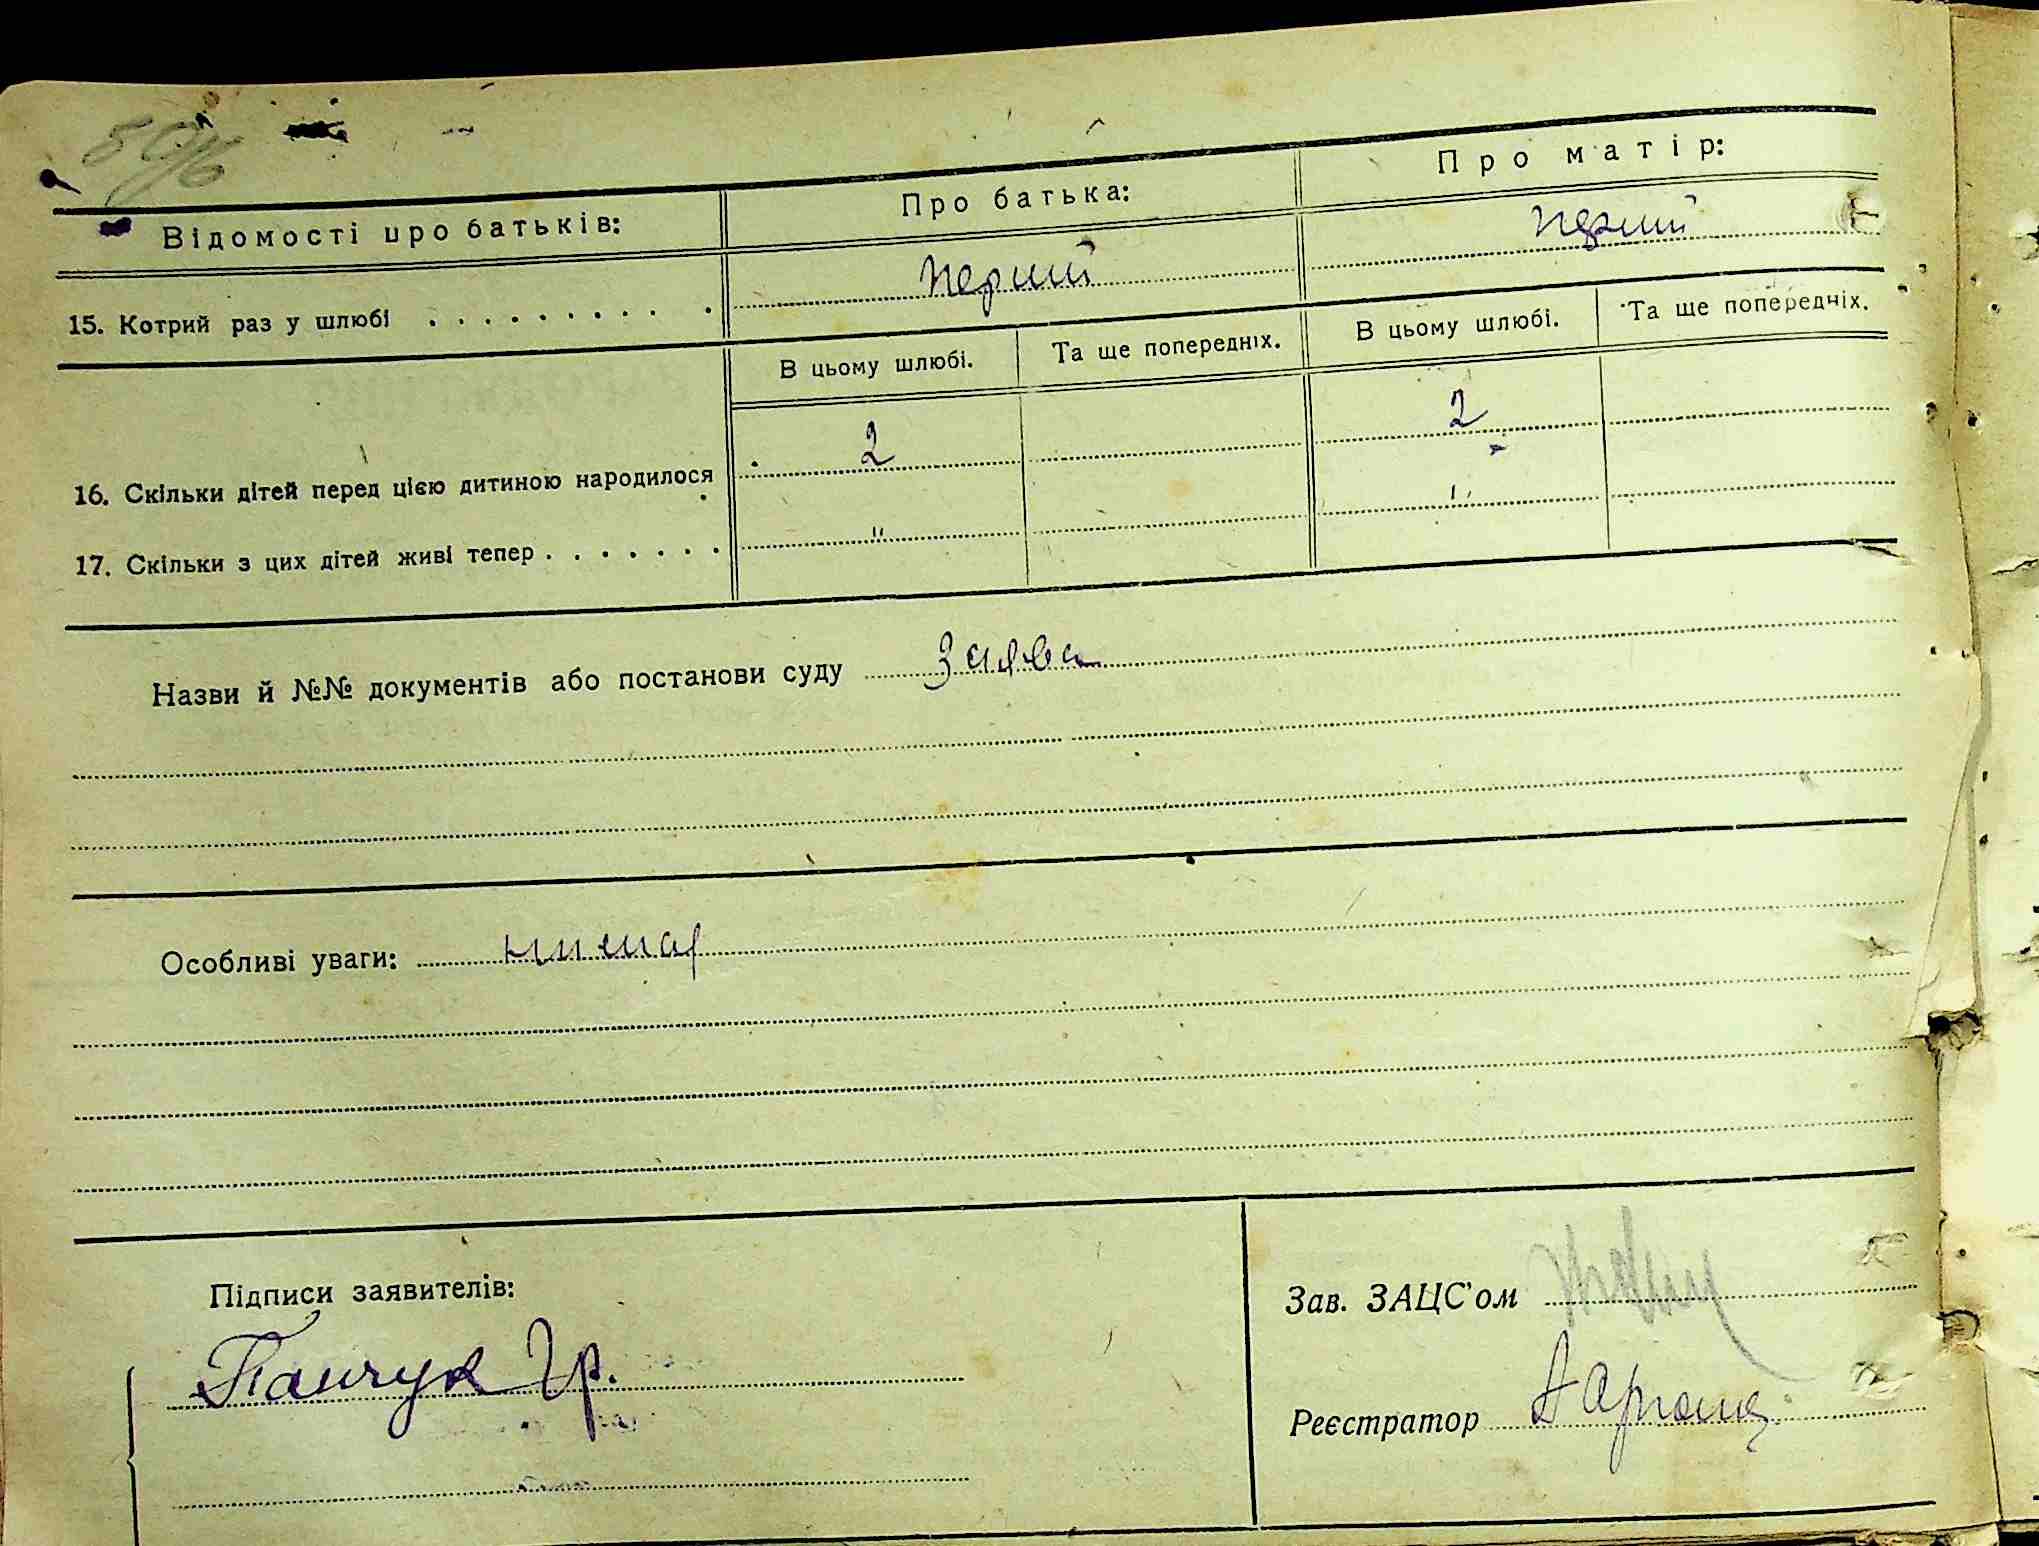 Відомості про батьків:
Про батька:
Про матір:
15. Котрий раз у шлюбі
перший
перший
В цьому шлюбі.
Та ще попередніх.
В цьому шлюбі.
Та ще попередніх.
16. Скільки дітей перед цією дитиною народилося
2
2
17. Скільки з цих дітей живі тепер
"
"
Назви й №№ документів або постанови суду заява
Особливі уваги:
Підписи заявителів:
Панчук Гр.
Зав. ЗАЦС'ом
Реєстратор